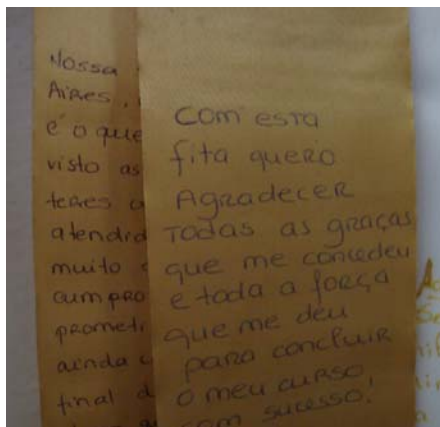 Nossa
Aires,
é o que
visto as
teres
atendid
muito
cumpro
prometi
ainda
final d
Com esta
fita quero
Agradecer
todas as graças
que me concedeu
e toda a força
que me deu
para concluir
o meu curso
com sucesso,